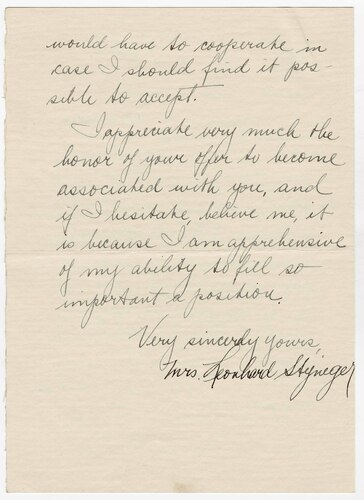 would have to cooperate in
case I should find it pos-
sible to accept.
I appreciate very much the
honor of your offer to become
associated with you, and
if I hesitate, believe me, it
is because I am apprehensive
of my ability to fill so
important a position.
Very sincerely yours,
Mrs. Leonhard Stejneger